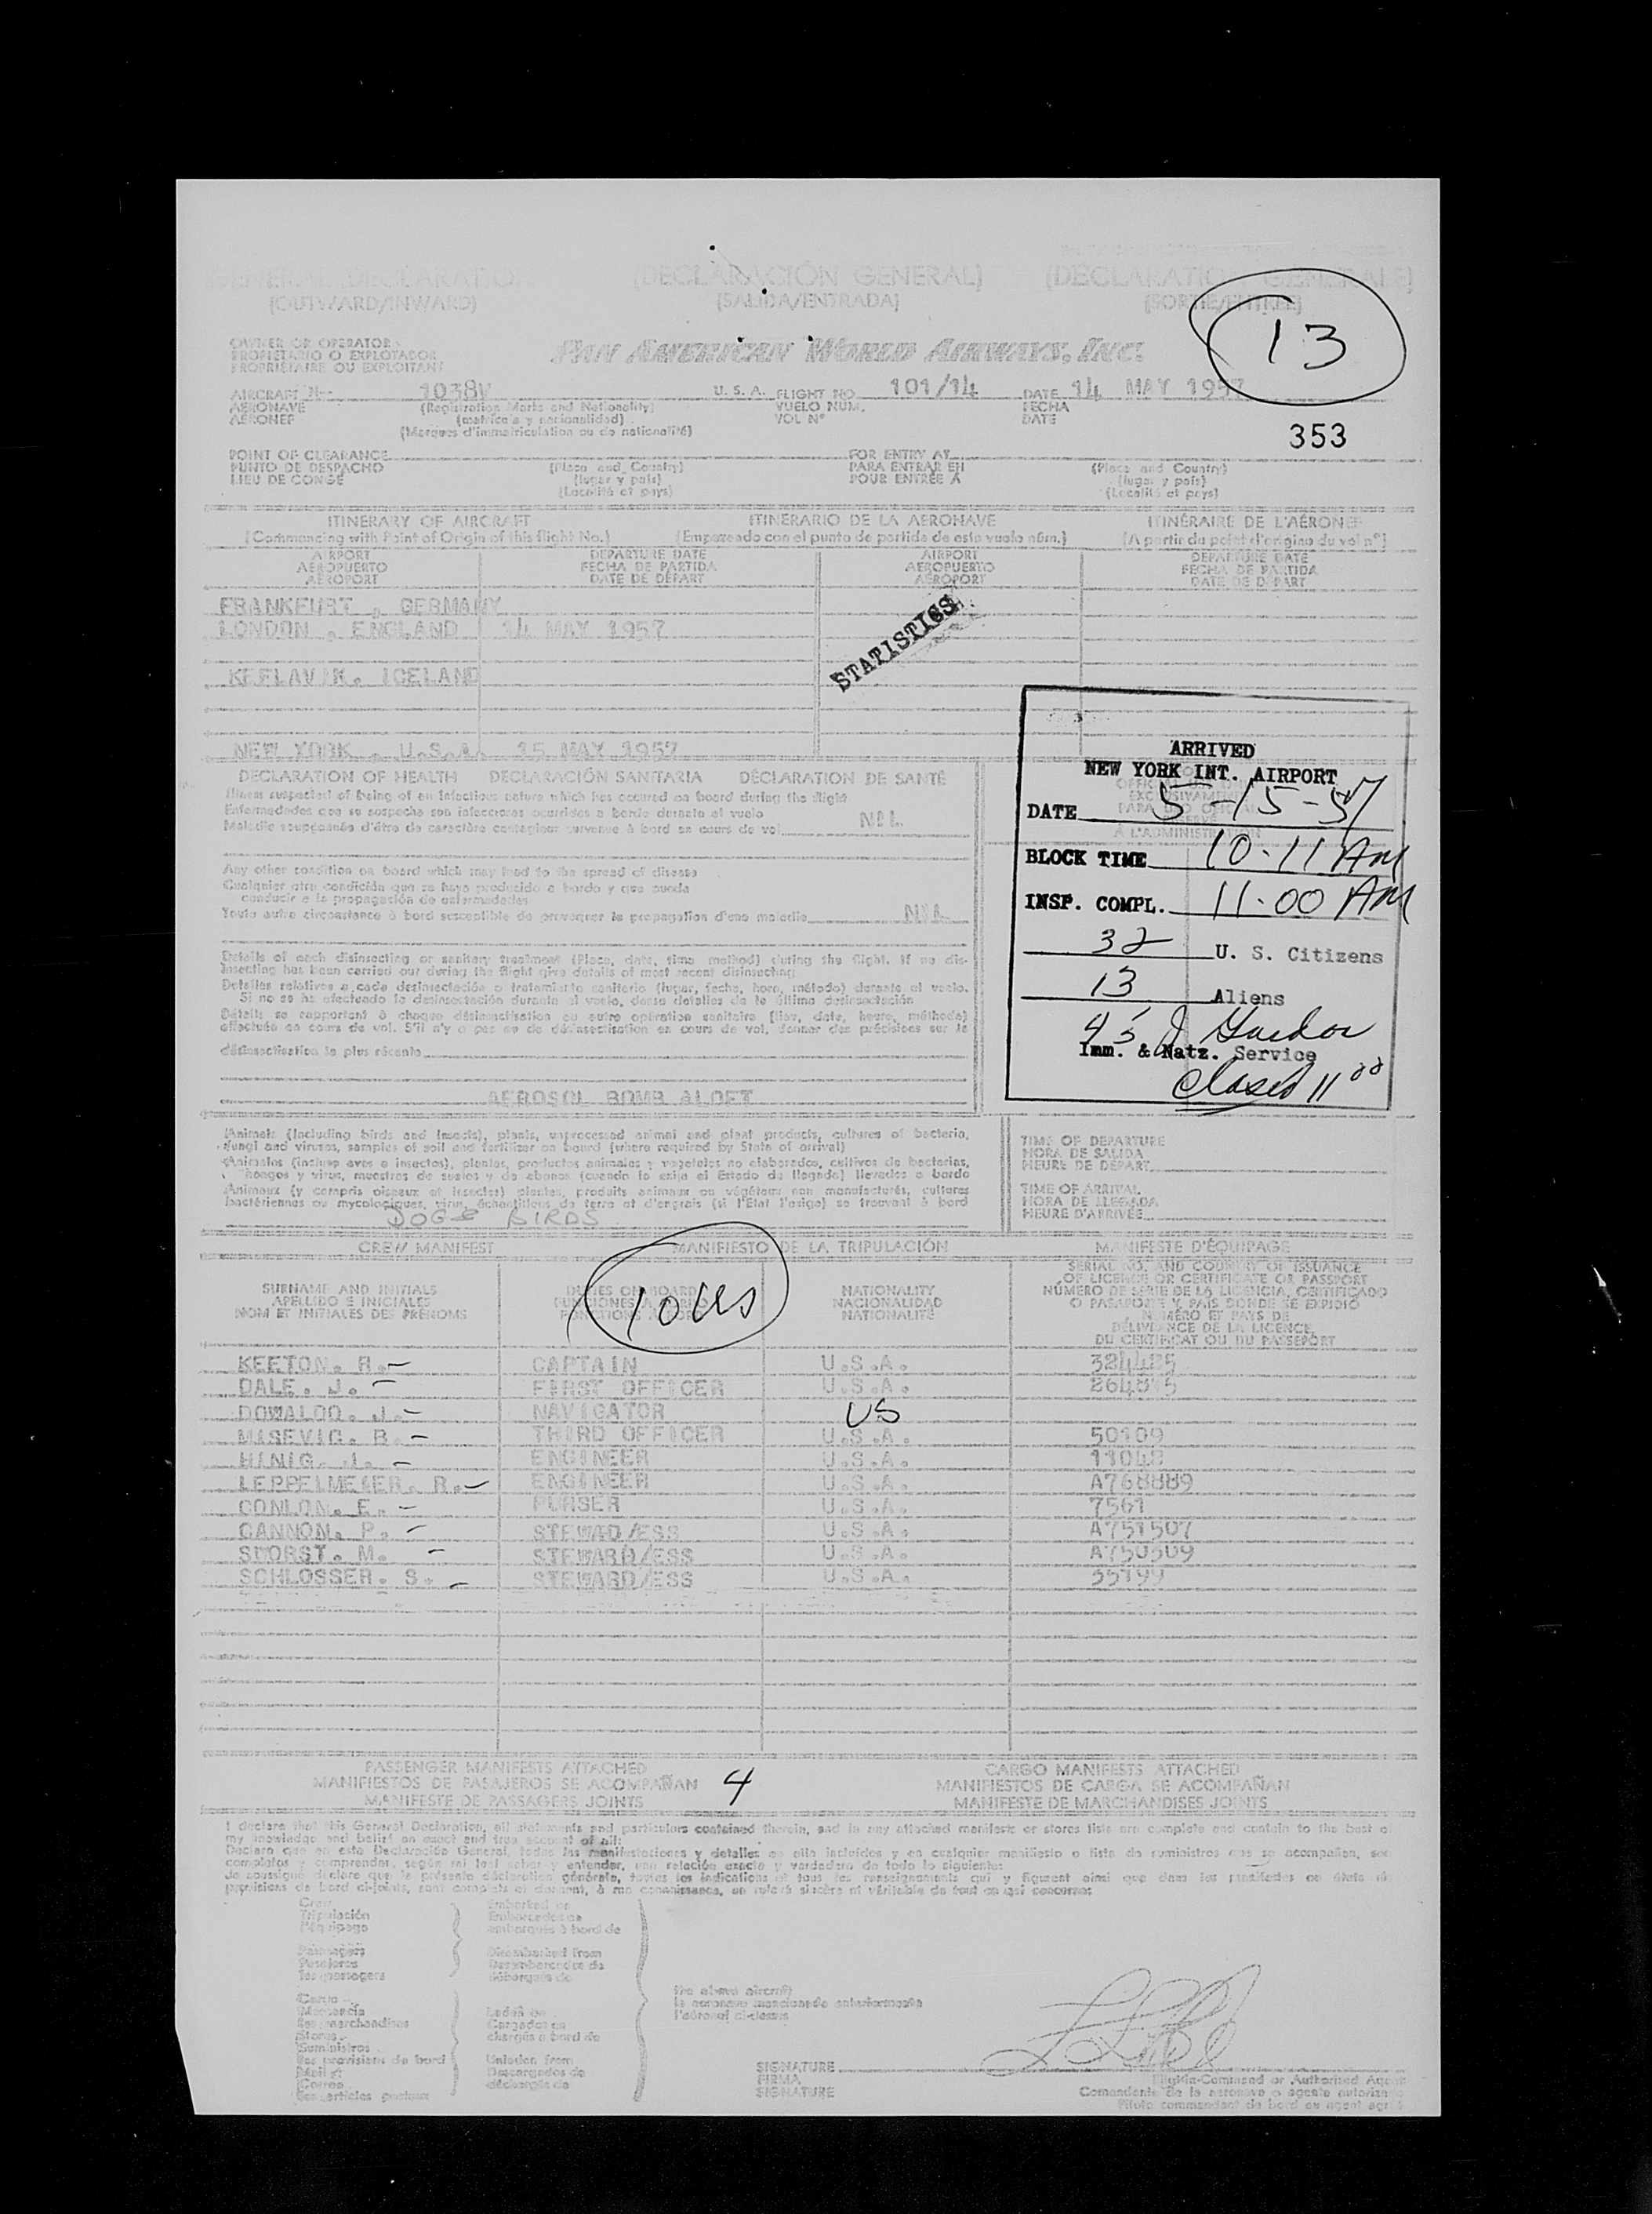 GENERAL DECLARATION (DECLARACIÓN GENERAL) (DÉCLARATION GÉNÉRALE)
(OUTWARD/INWARD) (SALIDA/ENTRADA) (SORTIE/ENTRÉE)
13
OWNER OR OPERATOR
PROPIETARIO O EXPLOTADOR
PROPRIÉTAIRE OU EXPLOITANT
PAN AMERICAN WORLD AIRWAYS, INC.
AIRCRAFT N- 1038V U. S. A. FLIGHT NO. 101/14 DATE 14 MAY 1957
AERONAVE (Registration Marks and Nationality) VUELO NÚM. FECHA
AÉRONEF (matrícula y nacionalidad) VOL Nº DATE
(Marques d'immatriculation ou de nationalité)
353
POINT OF CLEARANCE FOR ENTRY AT
PUNTO DE DESPACHO (Place and Country) PARA ENTRAR EN (Place and Country)
LIEU DE CONGÉ (lugar y país) POUR ENTRÉE À (lugar y país)
(Localité et pays) (Localité et pays)
ITINERARY OF AIRCRAFT ITINERARIO DE LA AERONAVE ITINÉRAIRE DE L'AÉRONEF
(Commencing with Point of Origin of this flight No.) (Empezando con el punto de partida de este vuelo núm.) (A partir du point d'origine du vol nº)
AIRPORT DEPARTURE DATE AIRPORT DEPARTURE DATE
AEROPUERTO FECHA DE PARTIDA AEROPUERTO FECHA DE PARTIDA
AÉROPORT DATE DE DÉPART AÉROPORT DATE DE DÉPART
FRANKFURT , GERMANY
LONDON , ENGLAND 14 MAY 1957
STATISTICS
KEFLAVIK, ICELAND
NEW YORK , U.S.A. 15 MAY 1957
ARRIVED
NEW YORK INT. AIRPORT
DATE 5-15-57
BLOCK TIME 10-11 AM
INSP. COMPL. 11-00 AM
32 U. S. Citizens
13 Aliens
45
Imm. & Natz. Service
Closed 11 00
DECLARATION OF HEALTH DECLARACIÓN SANITARIA DÉCLARATION DE SANTÉ
Illness suspected of being of an infectious nature which has occured on board during the flight
Enfermedades que se sospecha son infecciosas ocurridas a bordo durante el vuelo
Maladie soupçonnée d'être de caractère contagieux survenue à bord en cours de vol NIL
Any other condition on board which may lead to the spread of disease
Cualquier otra condición que se haya producido a bordo y que pueda
conducir a la propagación de enfermedades
Toute autre circonstance à bord susceptible de provoquer la propagation d'une maladie NIL
Details of each disinsecting or sanitary treatment (Place, date, time method) during the flight. If no dis-
insecting has been carried out during the flight give details of most recent disinsecting
Detalles relativos a cada desinsectación o tratamiento sanitario (lugar, fecha, hora, método) durante el vuelo.
Si no se ha efectuado la desinsectación durante el vuelo, dense detalles de la última desinsectación
Détails se rapportant à chaque désinsectisation ou autre opération sanitaire (lieu, date, heure, méthode)
effectuée en cours de vol. S'il n'y a pas eu de désinsectisation en cours de vol, donner des précisions sur la
désinsectisation la plus récente
AEROSOL BOMB ALOFT
Animals (including birds and insects), plants, unprocessed animal and plant products, cultures of bacteria,
fungi and viruses, samples of soil and fertilizer on board (where required by State of arrival)
Animales (incluso aves e insectos), plantas, productos animales y vegetales no elaborados, cultivos de bacterias,
hongos y virus, muestras de suelos y de abonos (cuando lo exija el Estado de llegada) llevados a bordo
Animaux (y compris oiseaux et insectes) plantes, produits animaux ou végétaux non manufacturés, cultures
bactériennes ou mycologiques, virus, échantillons de terre et d'engrais (si l'État l'exige) se trouvant à bord
DOGS BIRDS
TIME OF DEPARTURE
HORA DE SALIDA
HEURE DE DÉPART
TIME OF ARRIVAL
HORA DE LLEGADA
HEURE D'ARRIVÉE
CREW MANIFEST MANIFIESTO DE LA TRIPULACIÓN MANIFESTE D'ÉQUIPAGE
SURNAME AND INITIALS
APELLIDO E INICIALES
NOM ET INITIALES DES PRÉNOMS
DUTIES ON BOARD
FUNCIONES A BORDO
FONCTIONS À BORD
10 US
NATIONALITY
NACIONALIDAD
NATIONALITÉ
SERIAL NO. AND COUNTRY OF ISSUANCE
OF LICENCE OR CERTIFICATE OR PASSPORT
NÚMERO DE SERIE DE LA LICENCIA, CERTIFICADO
O PASAPORTE Y PAÍS DONDE SE EXPIDIÓ
NUMÉRO ET PAYS DE
DÉLIVRANCE DE LA LICENCE,
DU CERTIFICAT OU DU PASSEPORT
KEETON. R.- CAPTAIN U.S.A. 324485
DALE. J. - FIRST OFFICER U.S.A.
DOWALDO. J.- NAVIGATOR US
MISEVIC. B. - THIRD OFFICER U.S.A. 50109
HINIG. J. - ENGINEER U.S.A. 11048
LEPPELMEIER. R.- ENGINEER U.S.A. A768889
CONLON. E. - PURSER U.S.A. 7561
CANNON. P. - STEWAD/ESS U.S.A. A751507
SHORST. M. - STEWARD/ESS U.S.A. A750509
SCHLOSSER. S. - STEWARD/ESS U.S.A. 35199
PASSENGER MANIFESTS ATTACHED CARGO MANIFESTS ATTACHED
MANIFIESTOS DE PASAJEROS SE ACOMPAÑAN 4 MANIFIESTOS DE CARGA SE ACOMPAÑAN
MANIFESTE DE PASSAGERS JOINTS MANIFESTE DE MARCHANDISES JOINTS
I declare that this General Declaration, all statements and particulars contained therein, and in any attached manifests or stores lists are complete and contain to the best of
my knowledge and belief an exact and true account of all:
Declaro que en esta Declaración General, todas las manifestaciones y detalles en ella incluidos y en cualquier manifiesto o lista de suministros que se acompañan, son
completos y comprenden, según mi leal saber y entender, una relación exacta y verdadera de todo lo siguiente:
Je soussigné déclare que la présente déclaration générale, toutes les indications et tous les renseignements qui y figurent ainsi que dans les manifestes ou états de
provisions de bord ci-joints, sont complets et donnent, à ma connaissance, un relevé sincère et véritable de tout ce qui concerne:
Crew
Tripulación
l'équipage
Passengers
Pasajeros
les passagers
Cargo
Mercancía
les marchandises
Stores
Suministros
les provisions de bord
Mail
Correo
les articles postaux
Embarked on
Embarcados en
embarqués à bord de
Disembarked from
Desembarcados de
débarqués de
Laden on
Cargados en
chargés à bord de
Unladen from
Descargados de
déchargés de
the above aircraft
la aeronave mencionada anteriormente
l'aéronef ci-dessus
SIGNATURE
FIRMA
SIGNATURE
Pilot-in-Command or Authorized Agent
Comandante de la aeronave o agente autorizado
Pilote commandant de bord ou agent agréé